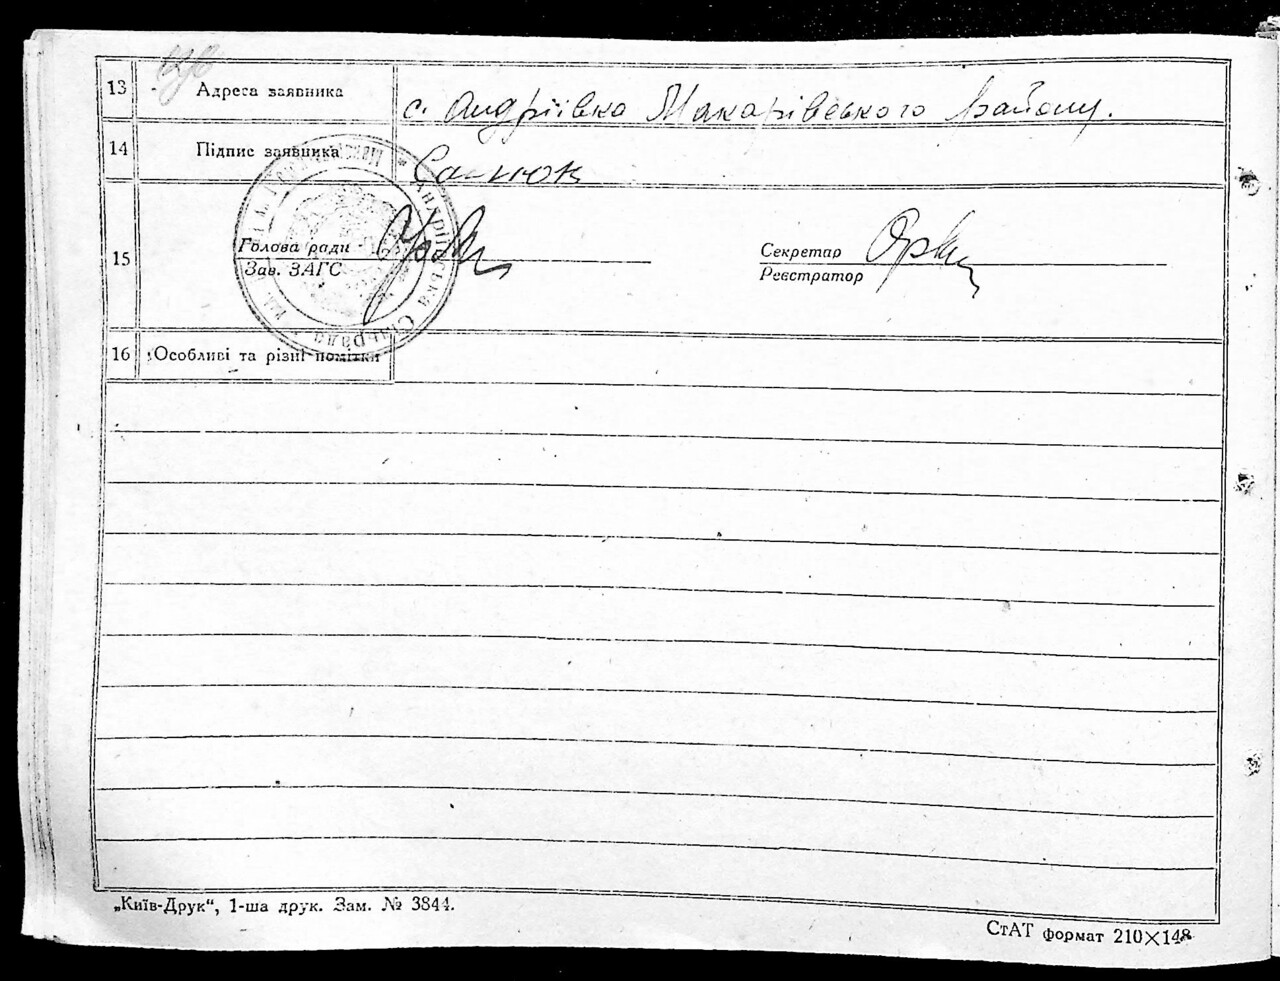 13 Адреса заявника с. Андріївка Макарівського району.
14 Підпис заявника
15 Голова ради Секретар
Зав. ЗАГС Реєстратор
16 Особливі та різні помітки
Андріївська Сільрада
„Київ-Друк“, 1-ша друк. Зам. № 3844.
СтАТ формат 210×148